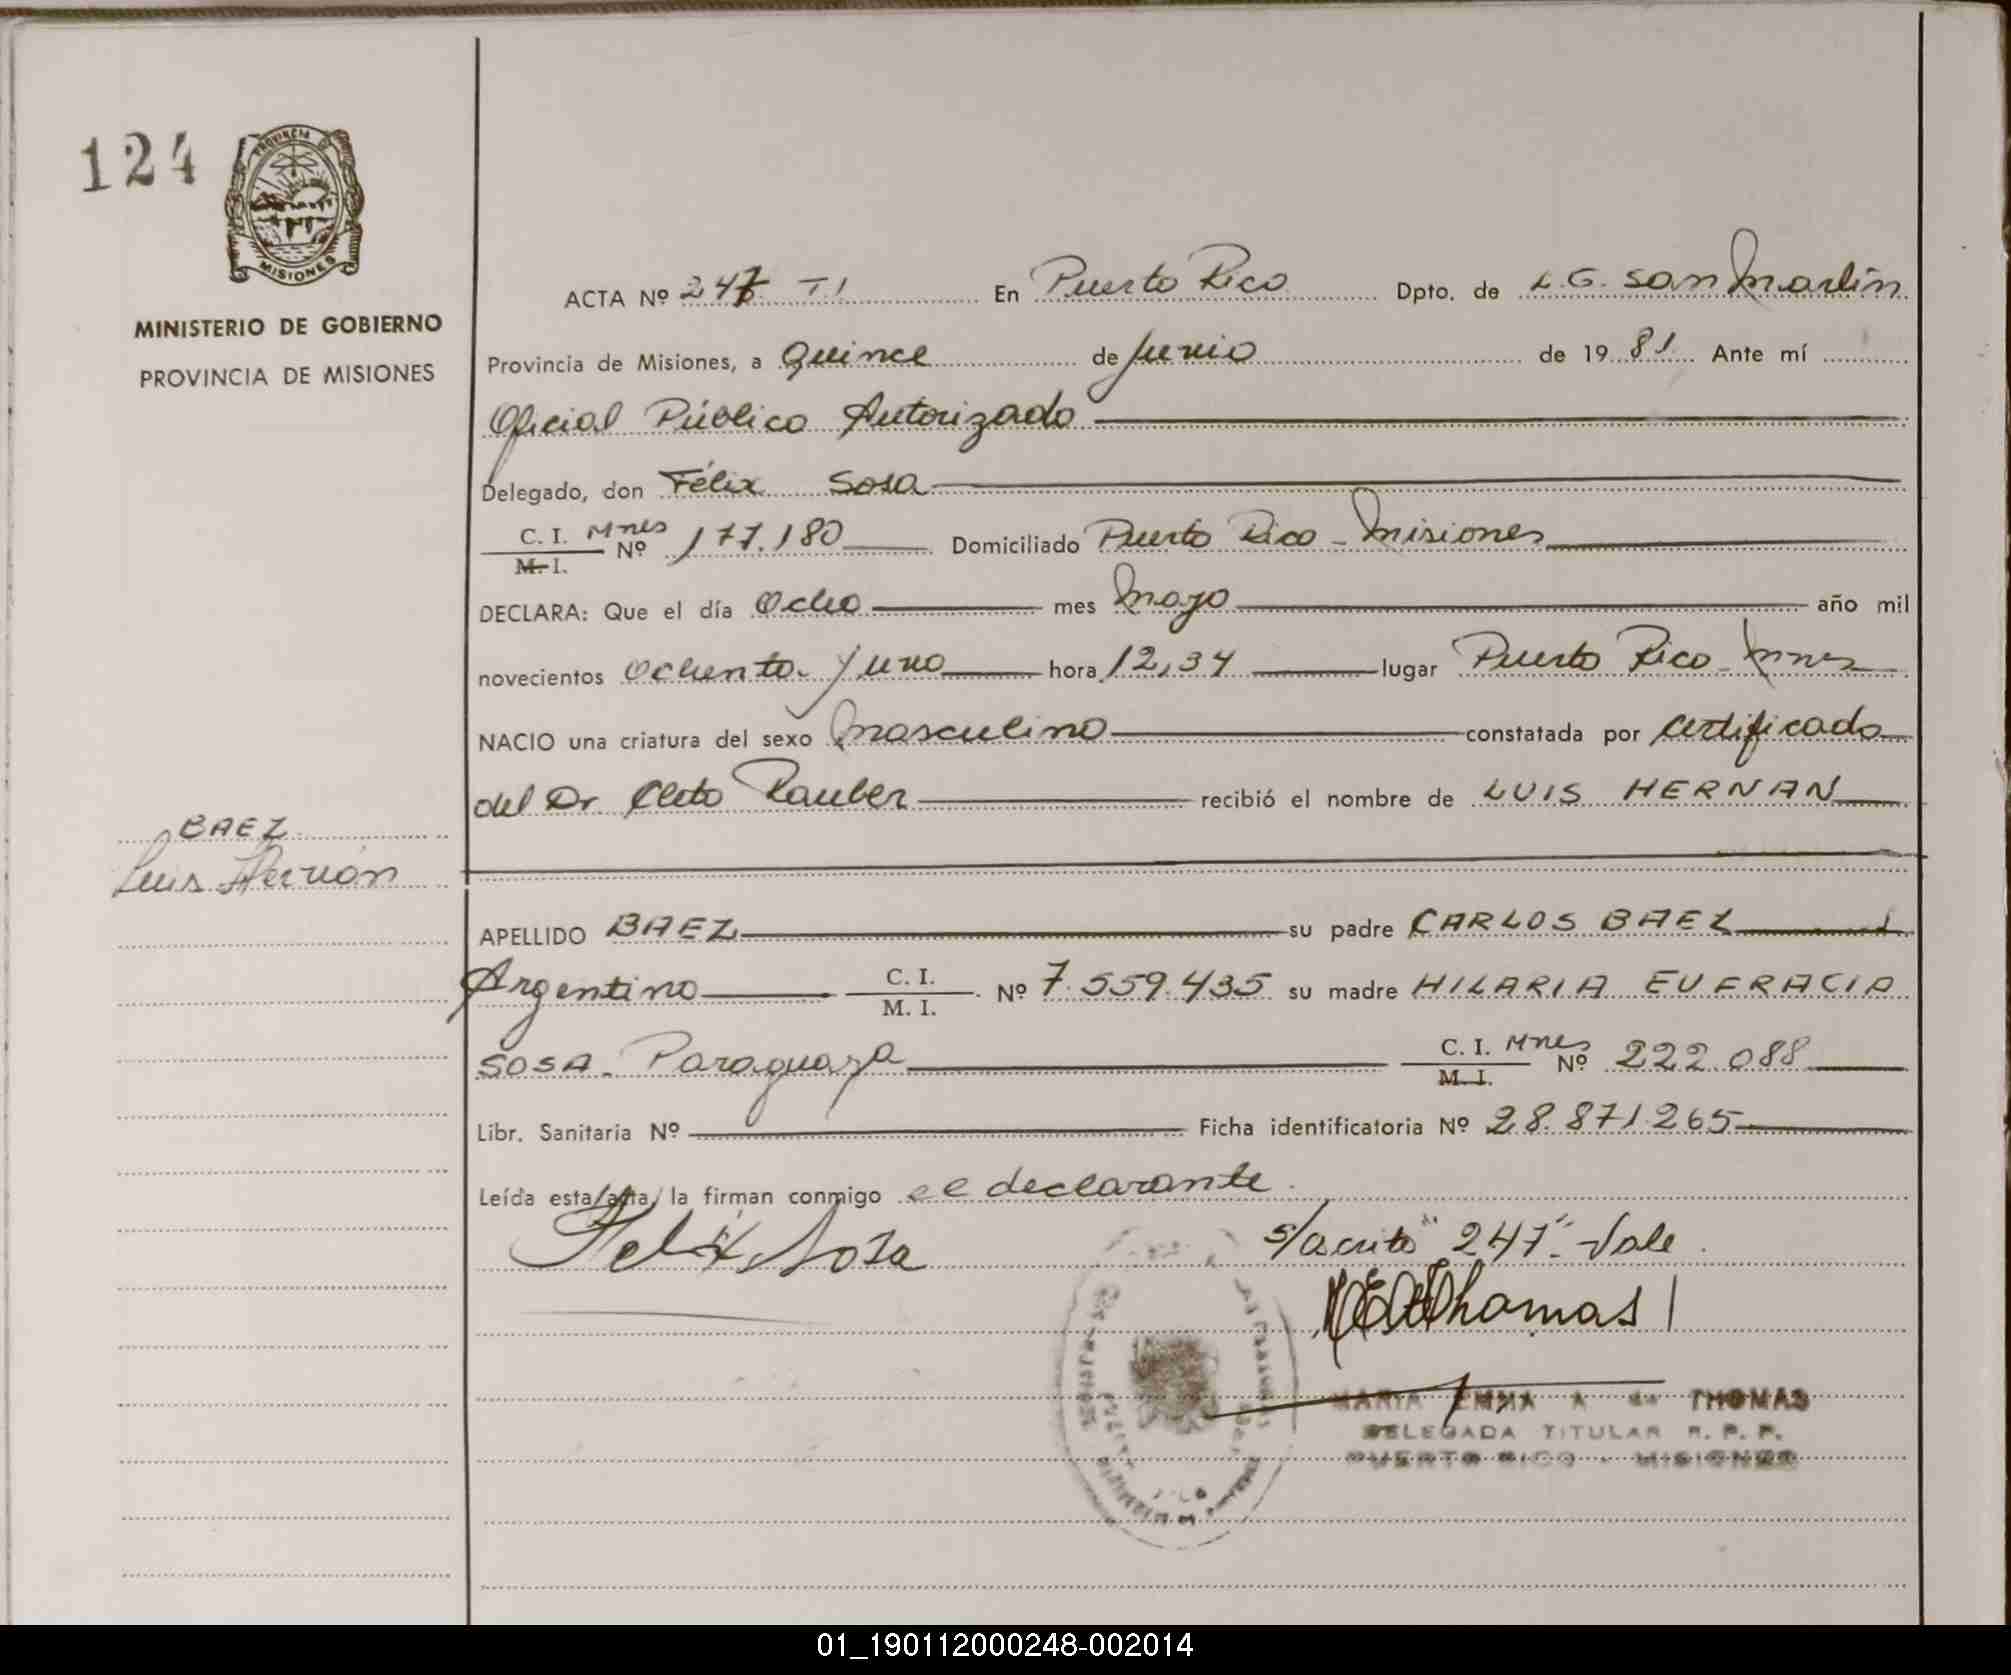 124
PROVINCIA DE
MISIONES
MINISTERIO DE GOBIERNO
PROVINCIA DE MISIONES
BAEZ
Luis Hernán
ACTA Nº 247 TI En Puerto Rico Dpto. de L.G. San Martín
Provincia de Misiones, a Quince de Junio de 1981 Ante mí
Oficial Público Autorizado
Delegado, don Félix Sosa
C. I. Mnes Nº 177.180 Domiciliado Puerto Rico - Misiones
M. I.
DECLARA: Que el día Ocho mes Mayo año mil
novecientos ochenta y uno hora 12,34 lugar Puerto Rico - Mnes
NACIO una criatura del sexo Masculino constatada por Certificado
del Dr. Cleto Rauber recibió el nombre de LUIS HERNAN
APELLIDO BAEZ su padre CARLOS BAEZ
Argentino C. I. Nº 7.559.435 su madre HILARIA EUFRACIA
M. I.
SOSA - Paraguaya C. I. Mnes Nº 222.088
M. I.
Libr. Sanitaria Nº Ficha identificatoria Nº 28.871.265
Leída esta acta, la firman conmigo el declarante.
Felix Sosa
s/ascrito "247" Vale
Thomas
MARIA EMMA A de THOMAS
DELEGADA TITULAR R. P. P.
PUERTO RICO - MISIONES
01_190112000248-002014